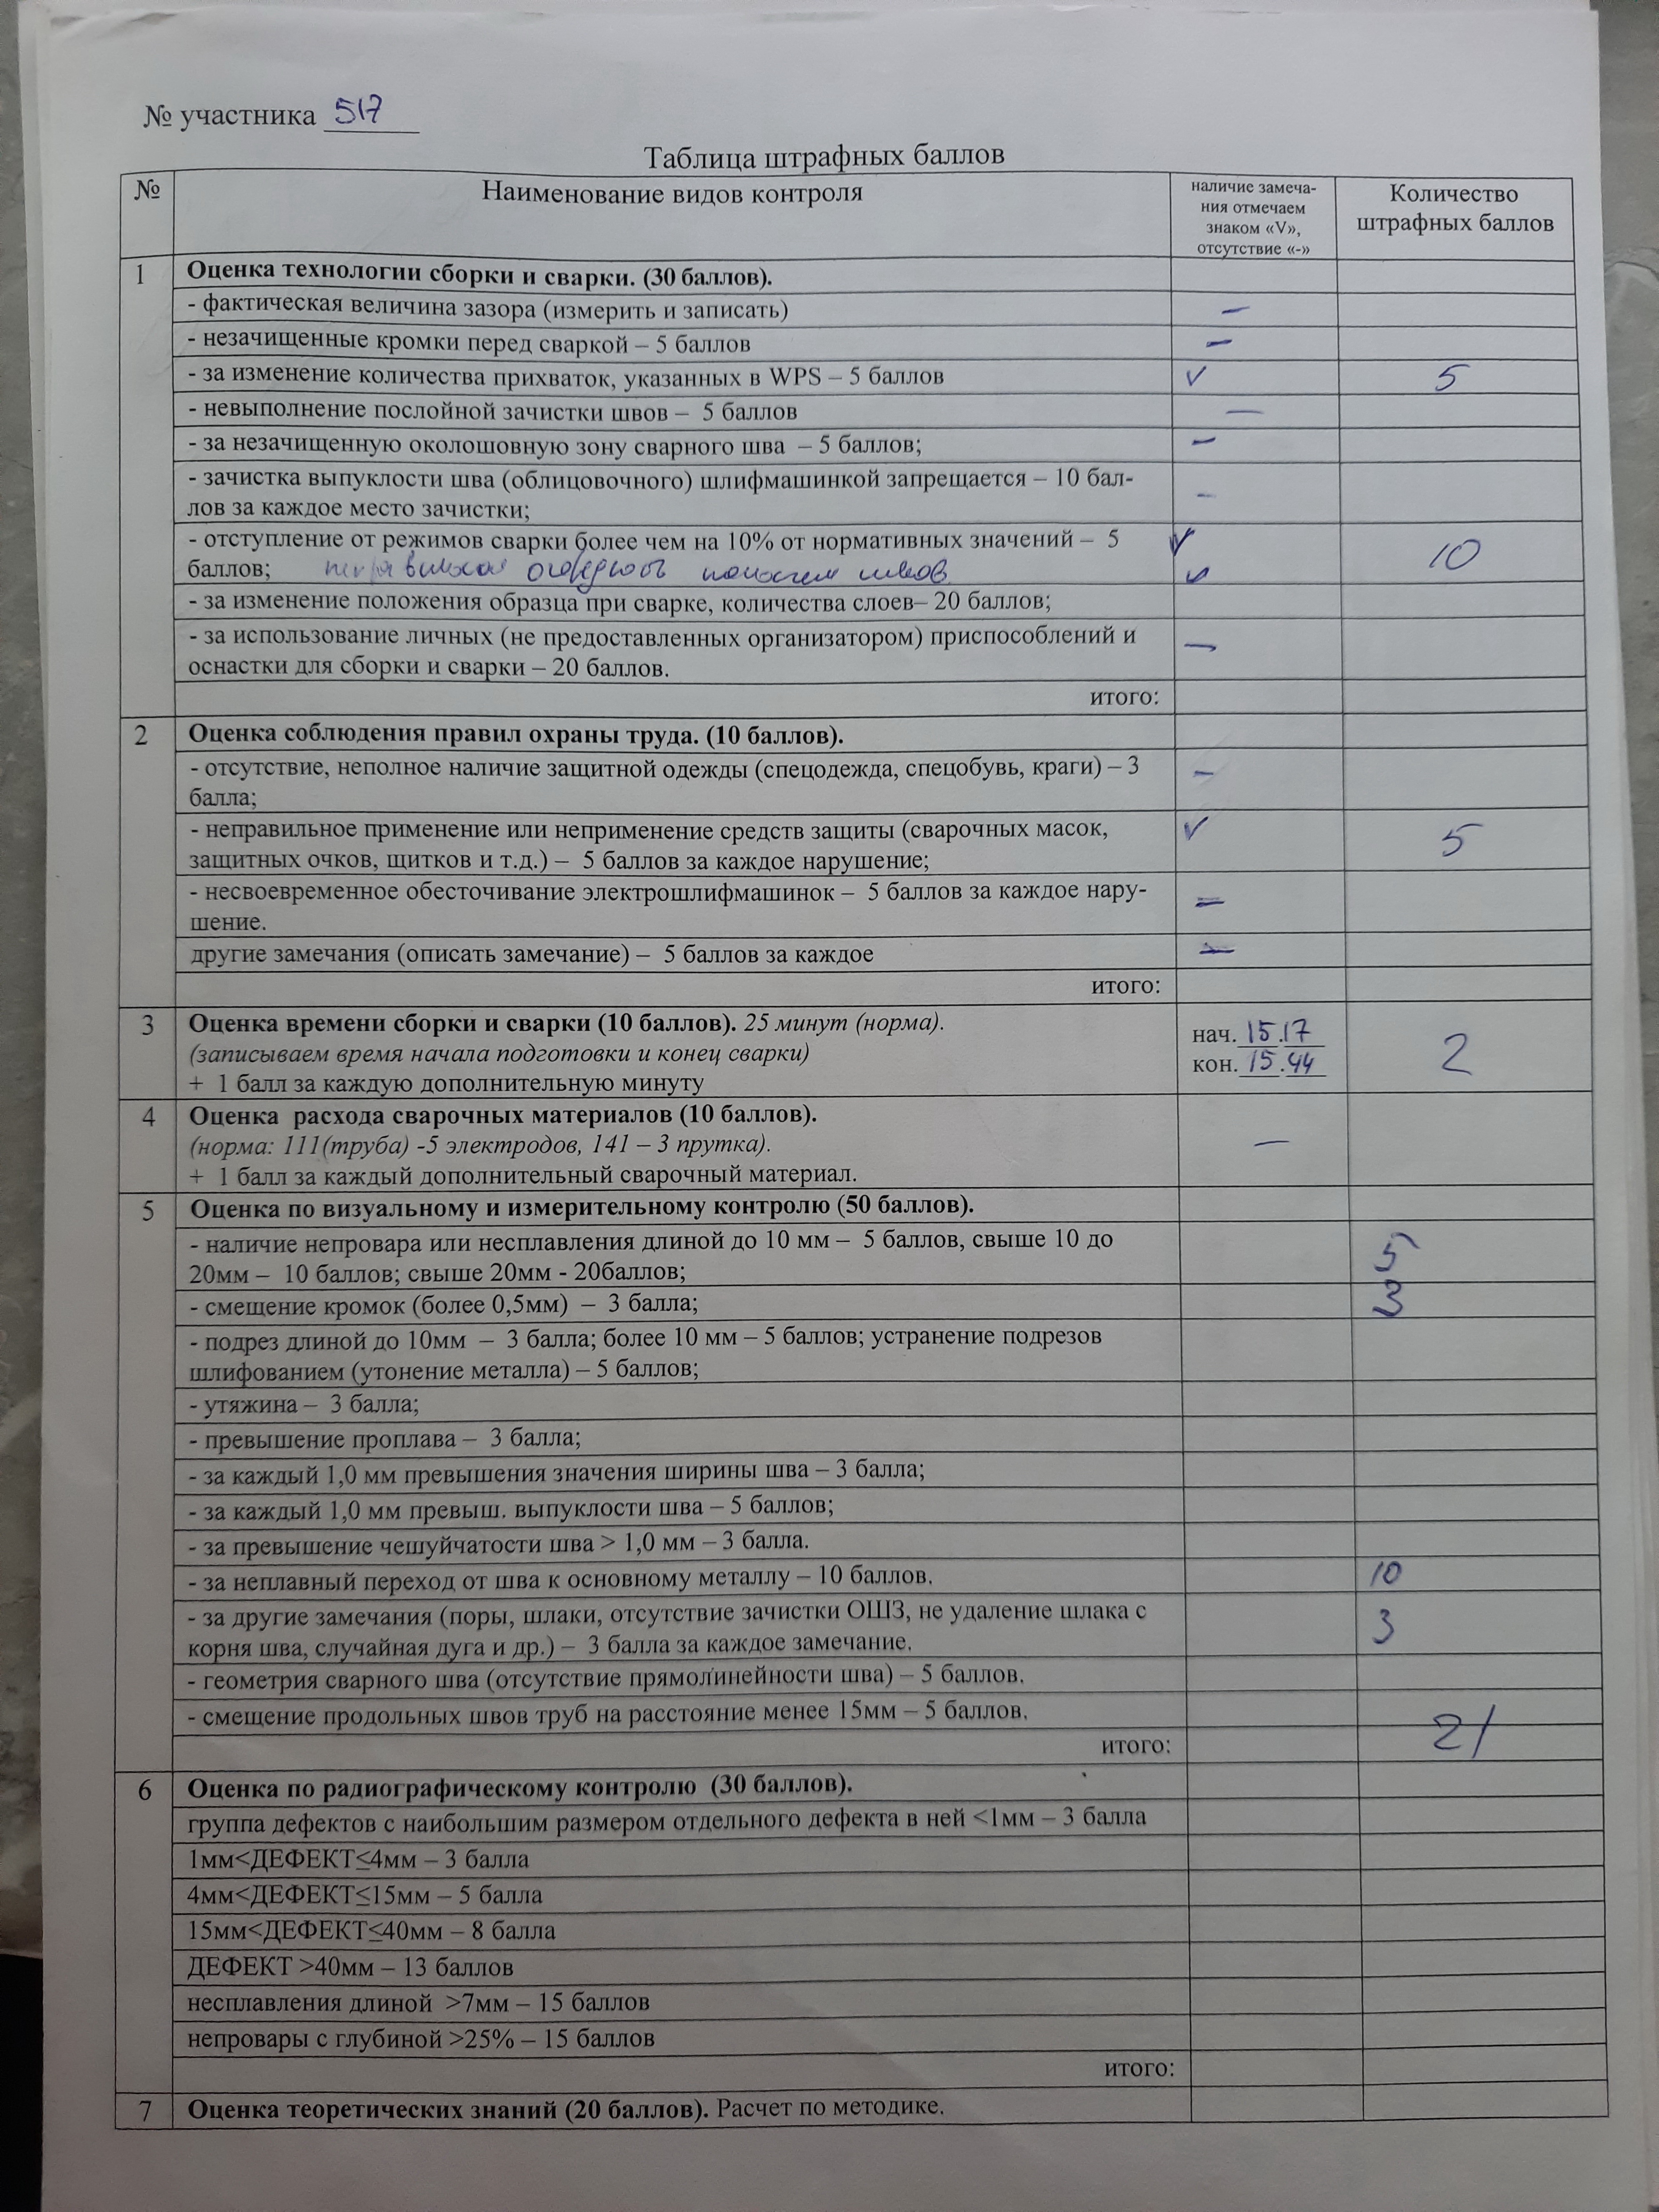 № участника 517
Таблица штрафных баллов
№
Наименование видов контроля
наличие замеча-
ния отмечаем
знаком «V»,
отсутствие «-»
Количество
штрафных баллов
1
Оценка технологии сборки и сварки. (30 баллов).
- фактическая величина зазора (измерить и записать) —
- незачищенные кромки перед сваркой – 5 баллов —
- за изменение количества прихваток, указанных в WPS – 5 баллов V 5
- невыполнение послойной зачистки швов – 5 баллов —
- за незачищенную околошовную зону сварного шва – 5 баллов; —
- зачистка выпуклости шва (облицовочного) шлифмашинкой запрещается – 10 бал-
лов за каждое место зачистки; -
- отступление от режимов сварки более чем на 10% от нормативных значений – 5 V 10
баллов; швов V
- за изменение положения образца при сварке, количества слоев– 20 баллов;
- за использование личных (не предоставленных организатором) приспособлений и
оснастки для сборки и сварки – 20 баллов. —
итого:
2
Оценка соблюдения правил охраны труда. (10 баллов).
- отсутствие, неполное наличие защитной одежды (спецодежда, спецобувь, краги) – 3 -
балла;
- неправильное применение или неприменение средств защиты (сварочных масок, V 5
защитных очков, щитков и т.д.) – 5 баллов за каждое нарушение;
- несвоевременное обесточивание электрошлифмашинок – 5 баллов за каждое нару- —
шение.
другие замечания (описать замечание) – 5 баллов за каждое —
итого:
3
Оценка времени сборки и сварки (10 баллов). 25 минут (норма). нач. 15.17
(записываем время начала подготовки и конец сварки) кон. 15.44 2
+ 1 балл за каждую дополнительную минуту
4
Оценка расхода сварочных материалов (10 баллов).
(норма: 111(труба) -5 электродов, 141 – 3 прутка). —
+ 1 балл за каждый дополнительный сварочный материал.
5
Оценка по визуальному и измерительному контролю (50 баллов).
- наличие непровара или несплавления длиной до 10 мм – 5 баллов, свыше 10 до 5
20мм – 10 баллов; свыше 20мм - 20баллов;
- смещение кромок (более 0,5мм) – 3 балла; 3
- подрез длиной до 10мм – 3 балла; более 10 мм – 5 баллов; устранение подрезов
шлифованием (утонение металла) – 5 баллов;
- утяжина – 3 балла;
- превышение проплава – 3 балла;
- за каждый 1,0 мм превышения значения ширины шва – 3 балла;
- за каждый 1,0 мм превыш. выпуклости шва – 5 баллов;
- за превышение чешуйчатости шва > 1,0 мм – 3 балла.
- за неплавный переход от шва к основному металлу – 10 баллов. 10
- за другие замечания (поры, шлаки, отсутствие зачистки ОШЗ, не удаление шлака с 3
корня шва, случайная дуга и др.) – 3 балла за каждое замечание.
- геометрия сварного шва (отсутствие прямолинейности шва) – 5 баллов.
- смещение продольных швов труб на расстояние менее 15мм – 5 баллов.
итого: 21
6
Оценка по радиографическому контролю (30 баллов).
группа дефектов с наибольшим размером отдельного дефекта в ней <1мм – 3 балла
1мм<ДЕФЕКТ≤4мм – 3 балла
4мм<ДЕФЕКТ≤15мм – 5 балла
15мм<ДЕФЕКТ≤40мм – 8 балла
ДЕФЕКТ >40мм – 13 баллов
несплавления длиной >7мм – 15 баллов
непровары с глубиной >25% – 15 баллов
итого:
7
Оценка теоретических знаний (20 баллов). Расчет по методике.